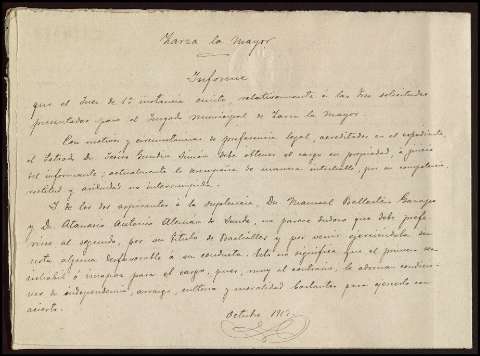 Zarza la Mayor
Informe
que el Juez de 1ª instancia emite, relativamente á las tres solicitudes
presentadas para el Juzgado municipal de Zarza la Mayor.
Con motivos y circunstancias de preferencia legal, acreditadas en el expediente,
el Letrado Dn Jesús Simón debe obtener el cargo en propiedad, á juicio
del informante; actualmente lo desempeña de manera intachable, por su competencia,
rectitud y actividad no interrumpida.
Y de los dos aspirantes á la suplencia, Dn Manuel Ballestero
y D. Atanasio Antonio Alemán de Sande, no parece dudoso que debe prefe-
rirse al segundo, por su título de Bachiller y por venir ejerciéndola sin
nota alguna desfavorable á su conducta. Esto no significa que el primero sea
inhábil ó incapaz para el cargo, pues, muy al contrario, le adornan condicio-
nes de independencia, arraigo, cultura y moralidad bastantes para ejercerlo con
acierto.
Octubre